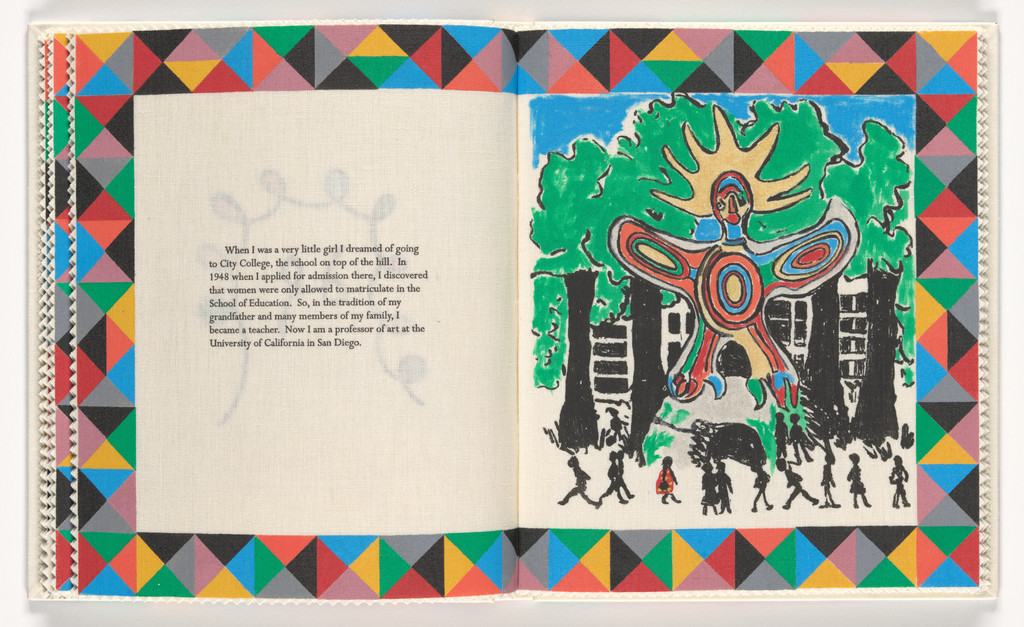 When I was a very little girl I dreamed of going
to City College, the school on top of the hill. In
1948 when I applied for admission there, I discovered
that women were only allowed to matriculate in the
School of Education. So, in the tradition of my
grandfather and many members of my family, I
became a teacher. Now I am a professor of art at the
University of California in San Diego.